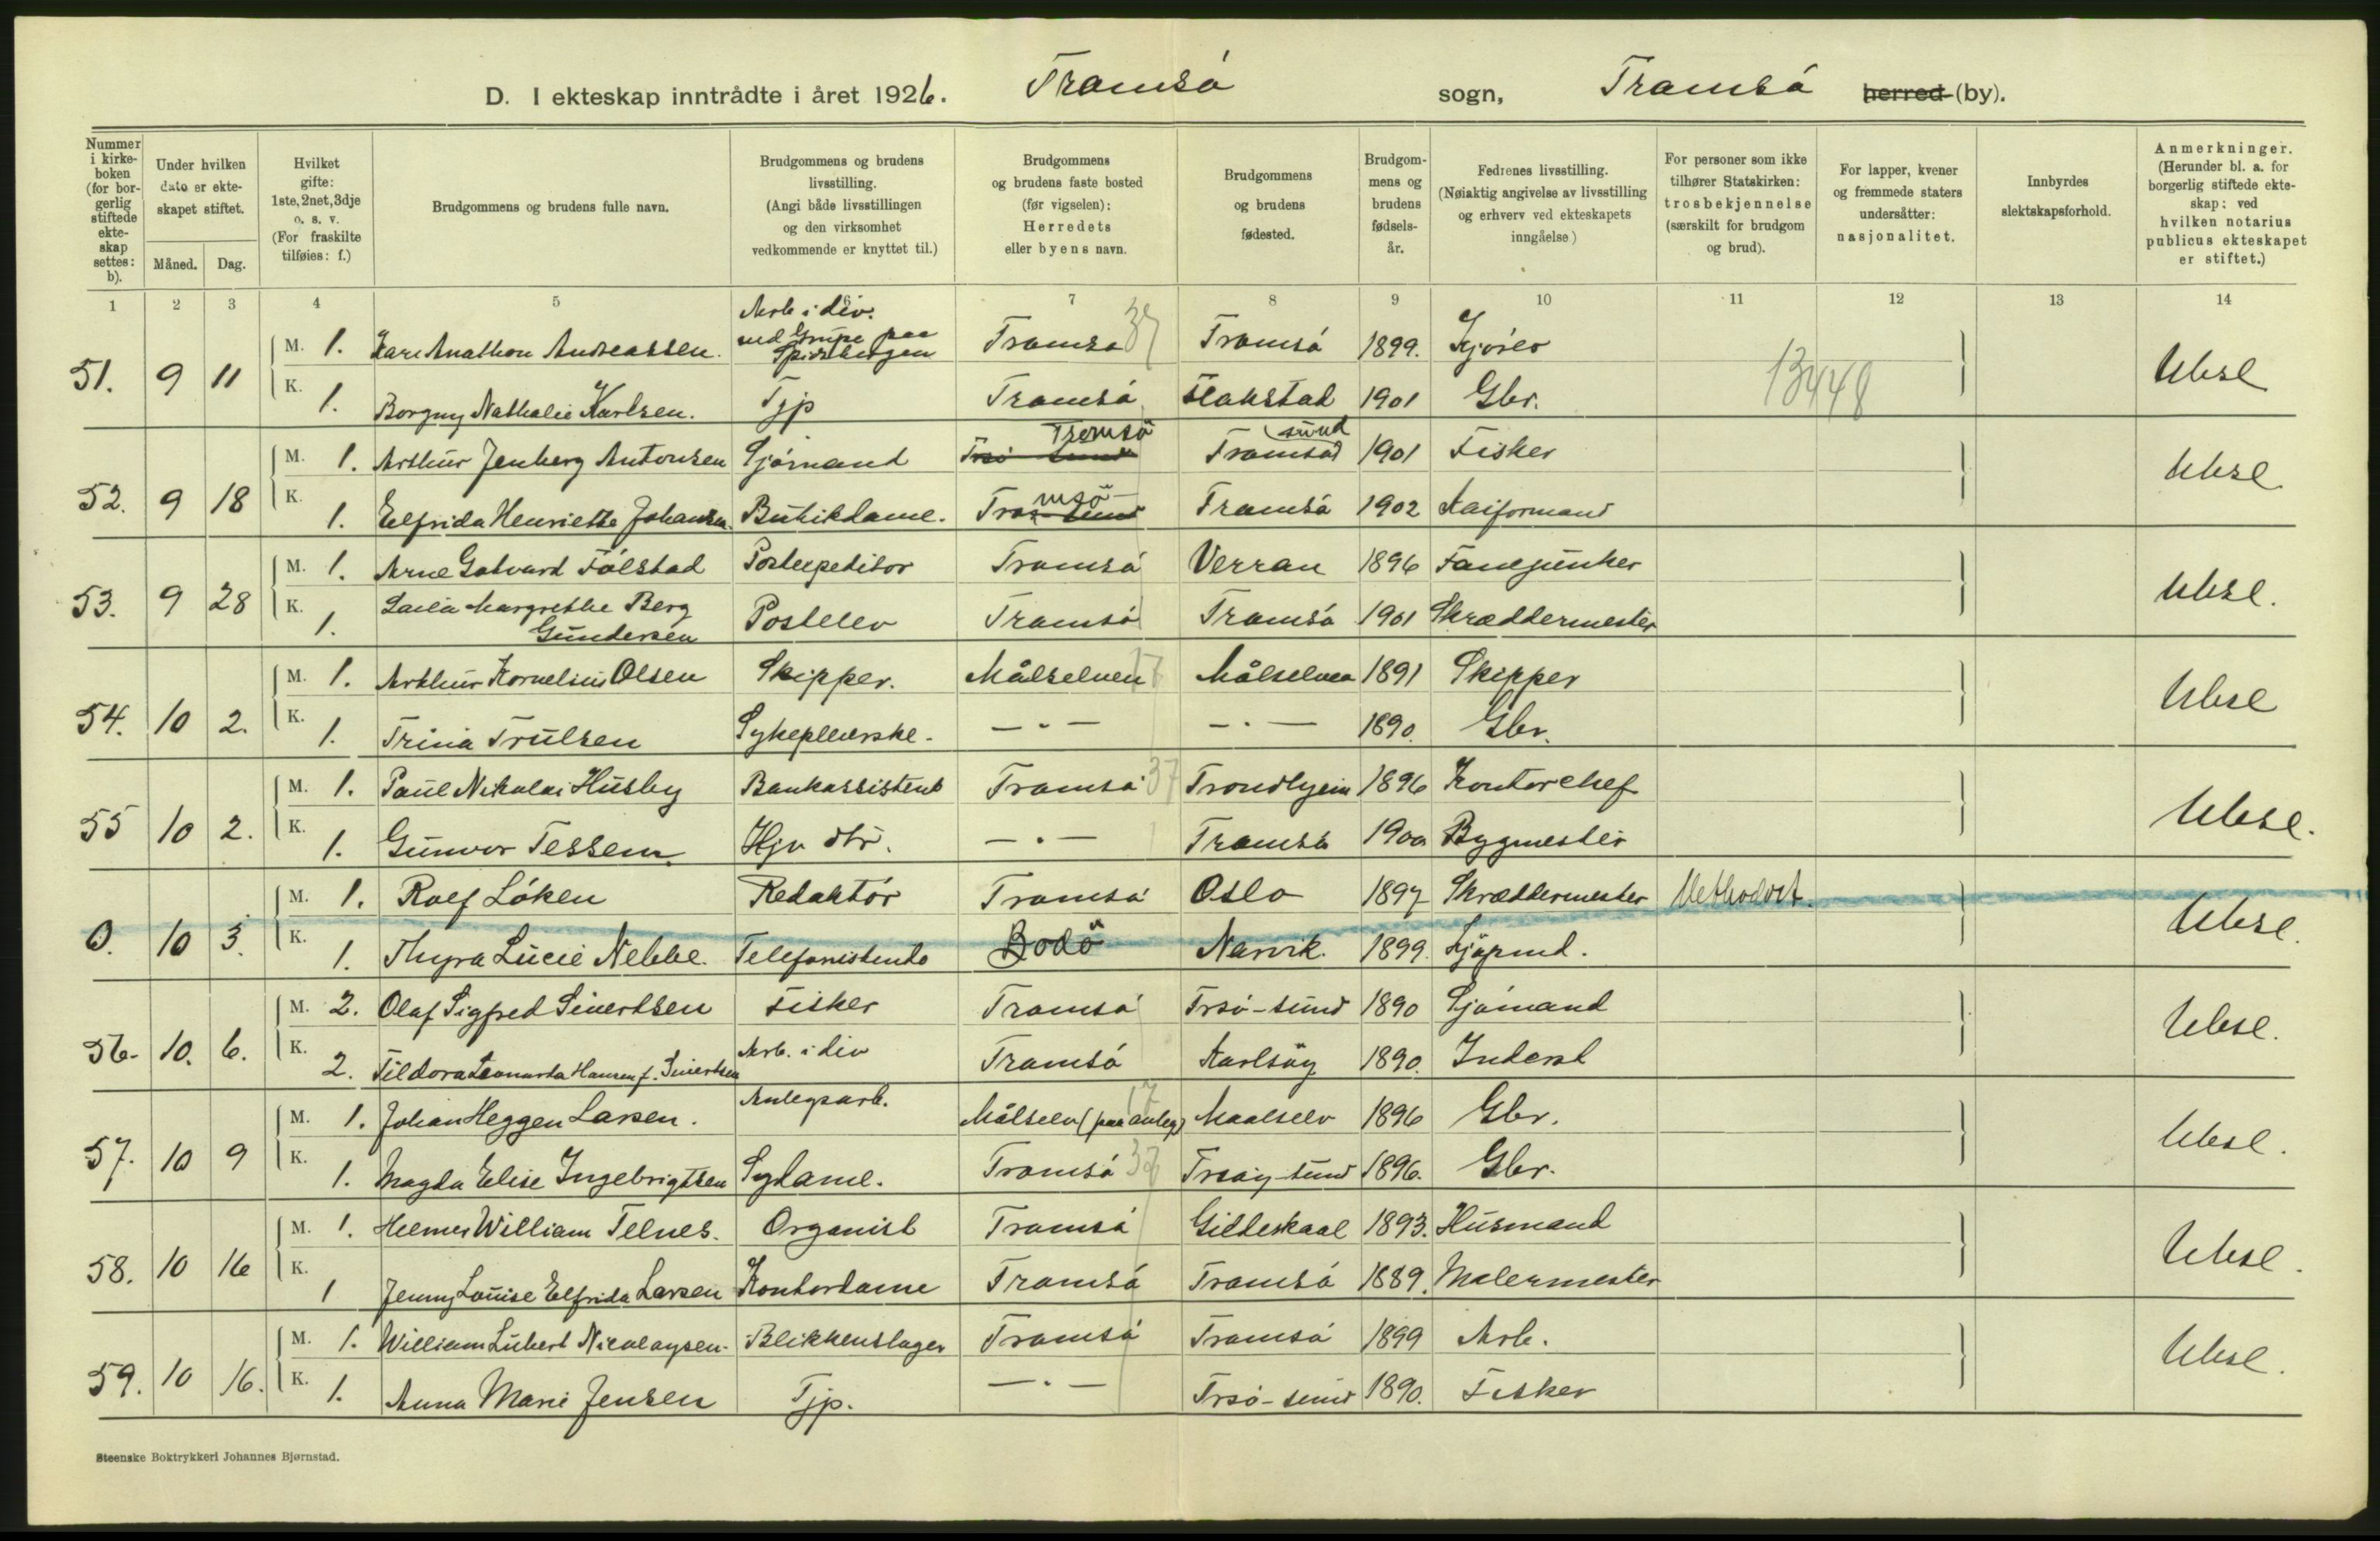 D. I ekteskap inntrådte i året 1926. Tromsö sogn, Tromsö herred (by).
Nummer i kirke-boken (for bor-gerlig stiftede ekte-skap settes: b).
Under hvilken dato er ekte-skapet stiftet.
Måned. Dag.
Hvilket gifte: 1ste, 2net, 3dje o. s. v. (For fraskilte tilføies: f.)
Brudgommens og brudens fulle navn.
Brudgommens og brudens livsstilling. (Angi både livsstillingen og den virksomhet vedkommende er knyttet til.)
Brudgommens og brudens faste bosted (før vigselen): Herredets eller byens navn.
Brudgommens og brudens fødested.
Brudgom-mens og brudens fødsels-år.
Fedrenes livsstilling. (Nøiaktig angivelse av livsstilling og erhverv ved ekteskapets inngåelse)
For personer som ikke tilhører Statskirken: trosbekjennelse (særskilt for brudgom og brud).
For lapper, kvener og fremmede staters undersåtter: nasjonalitet.
Innbyrdes slektskapsforhold.
Anmerkninger. (Herunder bl. a. for borgerlig stiftede ekte-skap: ved hvilken notarius publicus ekteskapet er stiftet.)
1 2 3 4 5 6 7 8 9 10 11 12 13 14
Arb i div.
ved Grube paa
Spidsbergen
51. 9 11 M. 1. Karl Anathon Andreassen. Tromsö 37 Tromsö 1899. Kjörer Ubsl
K. 1. Borgny Nathalie Karlsen. Tjp Tromsö Flakstad 1901 Gbr. 13448
52. 9 18 M. 1. Arthur Jenberg Antonsen Sjömand Trsö sund Tromsö Tromsö sund 1901 Fisker Ubsl
K. 1. Elfrida Henriette Johansen. Butikdame. Tromsö Tromsö 1902 Kaiformand
53. 9 28 M. 1. Arne Gotvard Fölstad Postexpeditor Tromsö Verran 1896 Fanejunker Ubsl.
K. 1. Laila Margrethe Berg
Gundersen Postelev Tromsö Tromsö 1901 Skræddermester
54. 10 2. M. 1. Arthur Kornelius Olsen Skipper. Målselven 17 Målselven 1891 Skipper Ubsl
K. 1. Trina Trulsen Sykepleierske. — " — — " — 1890. Gbr.
55 10 2. M. 1. Paul Nikolai Husby Bankassistent Tromsö 37 Trondhjem 1896 Kontorchef Ubsl.
K. 1. Gunvor Tessem. Hjv dtr. — " — Tromsö 1900 Bygmester
0. 10 3. M. 1. Rolf Löken Redaktör Tromsö Oslo 1897 Skræddermester Methodist. Ubsl.
K. 1. Thyra Lucie Nebbe. Telefonistinde Bodö Narvik. 1899. Kjöpmd.
56. 10. 6. M. 2. Olaf Sigfred Sivertsen Fisker Tromsö Trsö-sund 1890 Sjömand Ubsl.
K. 2. Tildora Leonarda Hansen f. Sivertsen Arb. i div Tromsö Karlsöy 1890. Inderst
57. 10 9 M. 1. Johan Heggen Larsen. Anlegsarb. Målselv (paa anleg) 17 Maalselv 1896 Gbr. Ubsl.
K. 1. Magda Elise Ingebrigtsen Sydame. Tromsö 37 Trsöy-sund 1896. Gbr.
58. 10 16 M. 1. Helmer William Telnes. Organist Tromsö Gildeskaal 1893. Husmand Ubsl.
K. 1 Jenny Louise Elfrida Larsen Kontordame Tromsö Tromsö 1889. Malermester
59. 10 16. M. 1. William Lubert Nicolaysen. Blikkenslager Tromsö Tromsö 1899 Arb. Ubsl.
K. 1. Anna Marie Jensen Tjp. — " — Trsö-sund 1890. Fisker
Steenske Boktrykkeri Johannes Bjørnstad.